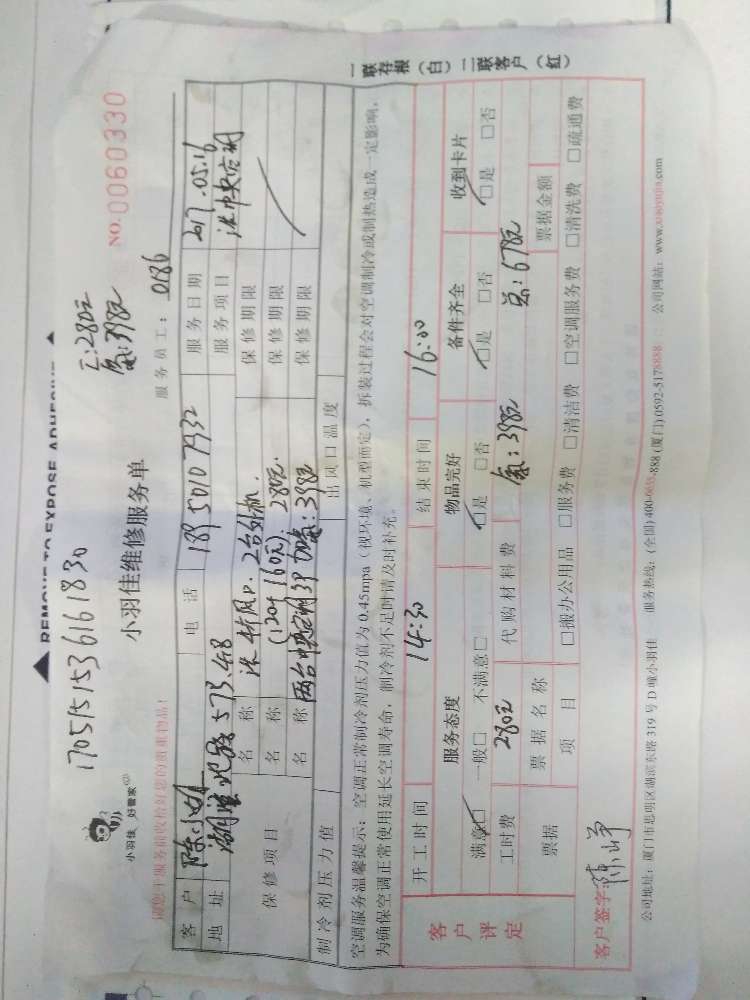 REMOVE TO EXPOSE ADHESIVE
1705151536161830
工:280元
氟:398元
小羽佳 好管家
小羽佳维修服务单
NO.0060330
请您于服务前收拾好您的贵重物品!
服务员工: 0186
客户 陈小姐 电话 189 5010 7932 服务日期 2017.05.16
地址 湖滨北路 573.4B 服务项目 洗中央空调
保修项目 名称 洗4个风口.2台外机. 保修期限
名称 (120+160元) 280元. 保修期限
名称 两台中央空调3P加氟:398元 保修期限
制冷剂压力值 出风口温度
空调服务温馨提示:空调正常制冷剂压力值为 0.45mpa(视环境、机型而定),拆装过程会对空调制冷或制热造成一定影响,
为确保空调正常使用延长空调寿命,制冷剂不足时请及时补充。
一联存根(白)二联客户(红)
客户评定
开工时间 14:30 结束时间 16:00
服务态度 物品完好 备件齐全 收到卡片
满意□ 一般□ 不满意□ □是 □否 □是 □否 □是 □否
工时费 280元 代购材料费 氟:398元 总:678元
票据 票据名称 票据金额
项目 □搬办公用品 □服务费 □清洁费 □空调服务费 □清洗费 □疏通费
客户签字: 陈峥
公司地址:厦门市思明区湖滨东路 319 号 D 幢小羽佳 服务热线:(全国)400-6658-888 (厦门) 0592-5178888 公司网站:www.xiaoyujia.com